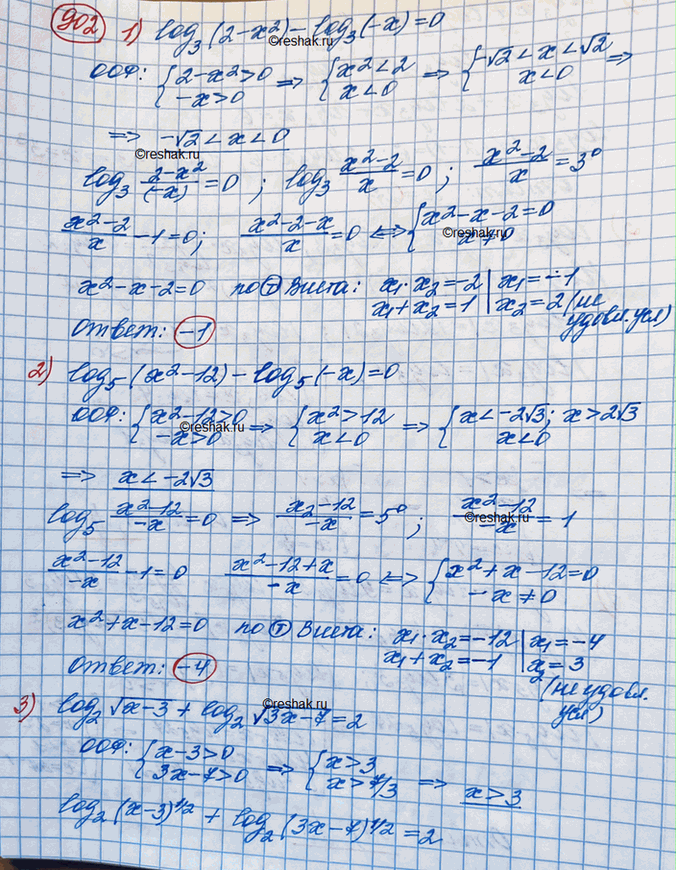 902 1) log₃(2-x²) - log₃(-x) = 0
ООФ: { 2-x²>0 ; -x>0 ⇒ { x²<2 ; x<0 ⇒ { -√2<x<√2 ; x<0 ⇒
©reshak.ru
⇒ -√2<x<0
©reshak.ru
log₃ (2-x²)/(-x) = 0 ; log₃ (x²-2)/x = 0 ; (x²-2)/x = 3⁰
(x²-2)/x - 1 = 0 ; (x²-2-x)/x = 0 ⇔ { x²-x-2=0 ; x≠0
©reshak.ru
x²-x-2=0 по Т Виета: x₁·x₂=-2 | x₁=-1
x₁+x₂=1 | x₂=2 (не
удовл. усл)
Ответ: -1
2) log₅(x²-12) - log₅(-x) = 0
ООФ: { x²-12>0 ; -x>0 ⇒ { x²>12 ; x<0 ⇒ { x<-2√3; x>2√3 ; x<0
©reshak.ru
⇒ x<-2√3
log₅ (x²-12)/(-x) = 0 ⇒ (x²-12)/(-x) = 5⁰ ; (x²-12)/(-x) = 1
©reshak.ru
(x²-12)/(-x) - 1 = 0 (x²-12+x)/(-x) = 0 ⇔ { x²+x-12=0 ; -x≠0
x²+x-12=0 по Т Виета: x₁·x₂=-12 | x₁=-4
x₁+x₂=-1 | x₂=3
(не удовл.
усл)
Ответ: -4
3) log₂√(x-3) + log₂√(3x-7) = 2
©reshak.ru
ООФ: { x-3>0 ; 3x-7>0 ⇒ { x>3 ; x>7/3 ⇒ x>3
log₂(x-3)^1/2 + log₂(3x-7)^1/2 = 2